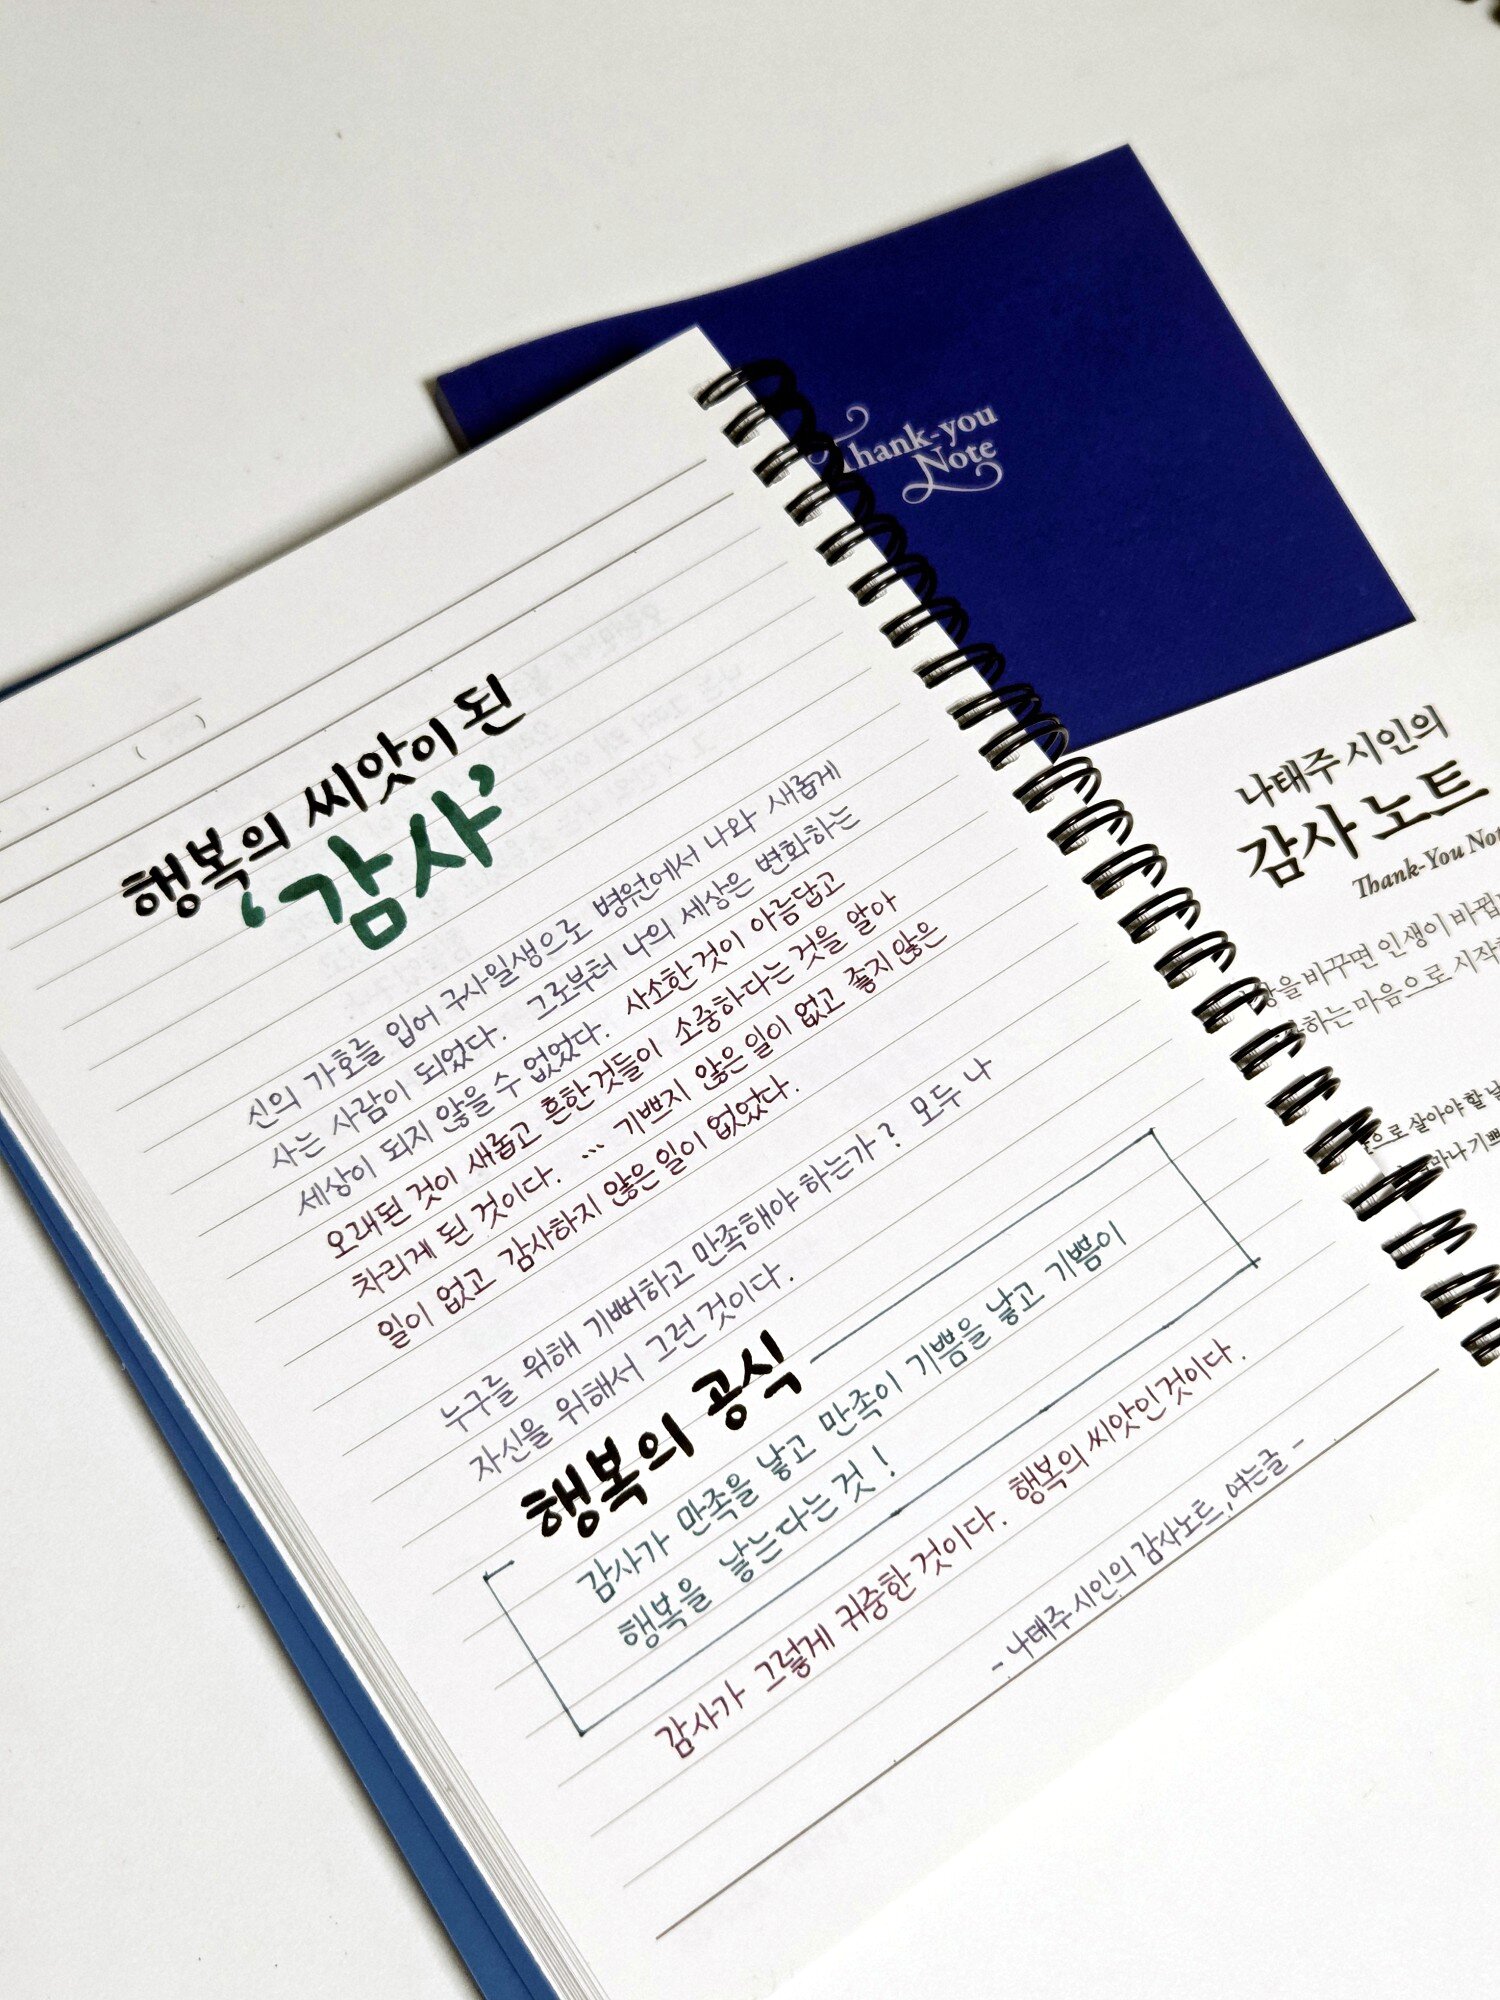 행복의 씨앗이 된
'감사'
신의 가호를 입어 구사일생으로 병원에서 나와 새롭게
사는 사람이 되었다. 그로부터 나의 세상은 변화하는
세상이 되지 않을 수 없었다. 사소한 것이 아름답고
오래된 것이 새롭고 흔한 것들이 소중하다는 것을 알아
차리게 된 것이다. … 기쁘지 않은 일이 없고 좋지 않은
일이 없고 감사하지 않은 일이 없었다.
누구를 위해 기뻐하고 만족해야 하는가? 모두 나
자신을 위해서 그런 것이다.
행복의 공식
감사가 만족을 낳고 만족이 기쁨을 낳고 기쁨이
행복을 낳는다는 것!
감사가 그렇게 귀중한 것이다. 행복의 씨앗인 것이다.
- 나태주 시인의 감사노트, 여는글 -
Thank-you
Note
나태주 시인의
감사 노트
Thank-You
바꾸면 인생이
마음으로
살아야 할